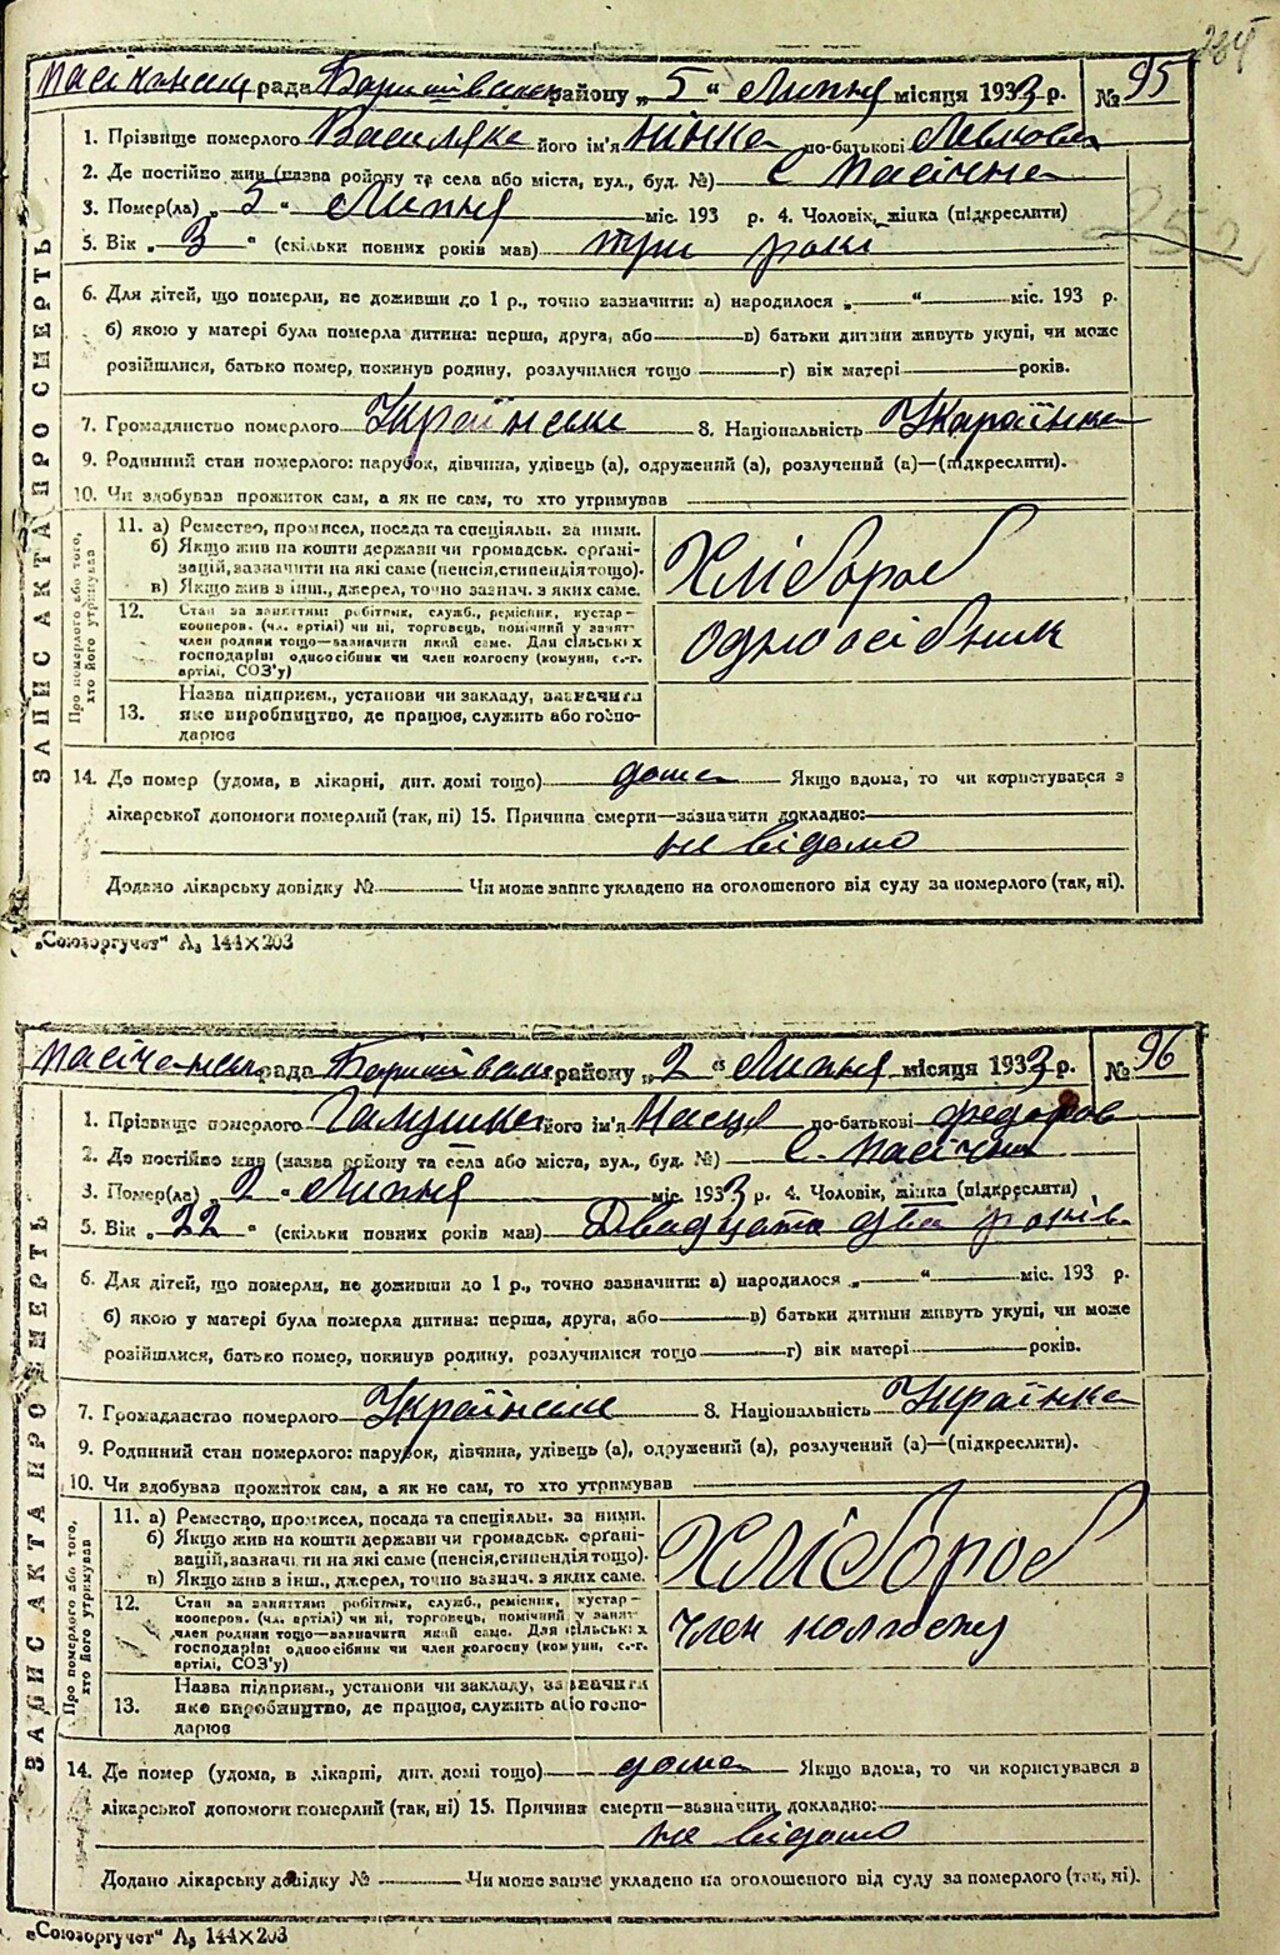 Пасічанська рада Баришівського району „ 5 “ Липня місяця 1933 р. № 95
1. Прізвище померлого Василяка його ім'я Нінка по-батькові Левкова
2. Де постійно жив (назва ройону та села або міста, вул., буд. №) С Пасічна
3. Помер(ла) „ 5 “ Липня міс. 193 р. 4. Чоловік, жінка (підкреслити)
252
5. Вік „ 3 “ (скільки повних років мав) три рокі
6. Для дітей, що померли, не доживши до 1 р., точно зазначити: а) народилося „ “ міс. 193 р.
б) якою у матері була померла дитина: перша, друга, або в) батьки дитини живуть укупі, чи може
розійшлися, батько помер, покинув родину, розлучилися тощо г) вік матері років.
7. Громадянство померлого Українське 8. Національність Украї́нка
9. Родинний стан померлого: парубок, дівчина, удівець (а), одружений (а), розлучений (а)—(підкреслити).
10. Чи здобував прожиток сам, а як не сам, то хто утримував
ЗАПИС АКТА ПРО СМЕРТЬ
Про померлого або того, хто його утримував
11. а) Ремество, промисел, посада та спеціяльн. за ними.
б) Якщо жив на кошти держави чи громадськ. орґані-
зацій, зазначити на які саме (пенсія, стипендія тощо).
в) Якщо жив з інш., джерел, точно зазнач. з яких саме.
Хлібороб
12. Стан за заняттям: робітник, служб., ремісник, кустар—
кооперов. (чл. артілі) чи ні, торговець, помічний у занят
член родини тощо—зазначити який саме. Для сільських
господарів: одноосібник чи член колгоспу (комуни, с.-г.
артілі, СОЗ'у)
одноосібник
13. Назва підприєм., установи чи закладу, зазначити
яке виробництво, де працює, служить або госпо-
дарює
14. Де помер (удома, в лікарні, дит. домі тощо) дома Якщо вдома, то чи користувався з
лікарської допомоги померлий (так, ні) 15. Причина смерти—зазначити докладно:
не відомо
Додано лікарську довідку № Чи може запис укладено на оголошеного від суду за померлого (так, ні).
„Союзоргучет“ А₅ 144×203
Пасіченська рада Баришівського району „ 2 “ Липня місяця 1933 р. № 96
1. Прізвище померлого Галушка його ім'я Насця по-батькові Федоров
2. Де постійно жив (назва ройону та села або міста, вул., буд. №) С. Пасічна
3. Помер(ла) „ 2 “ Липня міс. 1933 р. 4. Чоловік, жінка (підкреслити)
5. Вік „ 22 “ (скільки повних років мав) Двадцать два років
6. Для дітей, що померли, не доживши до 1 р., точно зазначити: а) народилося „ “ міс. 193 р.
б) якою у матері була померла дитина: перша, друга, або в) батьки дитини живуть укупі, чи може
розійшлися, батько помер, покинув родину, розлучилися тощо г) вік матері років.
7. Громадянство померлого Українське 8. Національність Українка
9. Родинний стан померлого: парубок, дівчина, удівець (а), одружений (а), розлучений (а)—(підкреслити).
10. Чи здобував прожиток сам, а як не сам, то хто утримував
ЗАПИС АКТА ПРО СМЕРТЬ
Про померлого або того, хто його утримував
11. а) Ремество, промисел, посада та спеціяльн. за ними.
б) Якщо жив на кошти держави чи громадськ. орґані-
зацій, зазначити на які саме (пенсія, стипендія тощо).
в) Якщо жив з інш., джерел, точно зазнач. з яких саме.
Хлібороб
12. Стан за заняттям: робітник, служб., ремісник, кустар—
кооперов. (чл. артілі) чи ні, торговець, помічний у занят
член родини тощо—зазначити який саме. Для сільських
господарів: одноосібник чи член колгоспу (комуни, с.-г.
артілі, СОЗ'у)
член колгоспу
13. Назва підприєм., установи чи закладу, зазначити
яке виробництво, де працює, служить або госпо-
дарює
14. Де помер (удома, в лікарні, дит. домі тощо) дома Якщо вдома, то чи користувався з
лікарської допомоги померлий (так, ні) 15. Причина смерти—зазначити докладно:
не відомо
Додано лікарську довідку № Чи може запис укладено на оголошеного від суду за померлого (так, ні).
„Союзоргучет“ А₅ 144×203